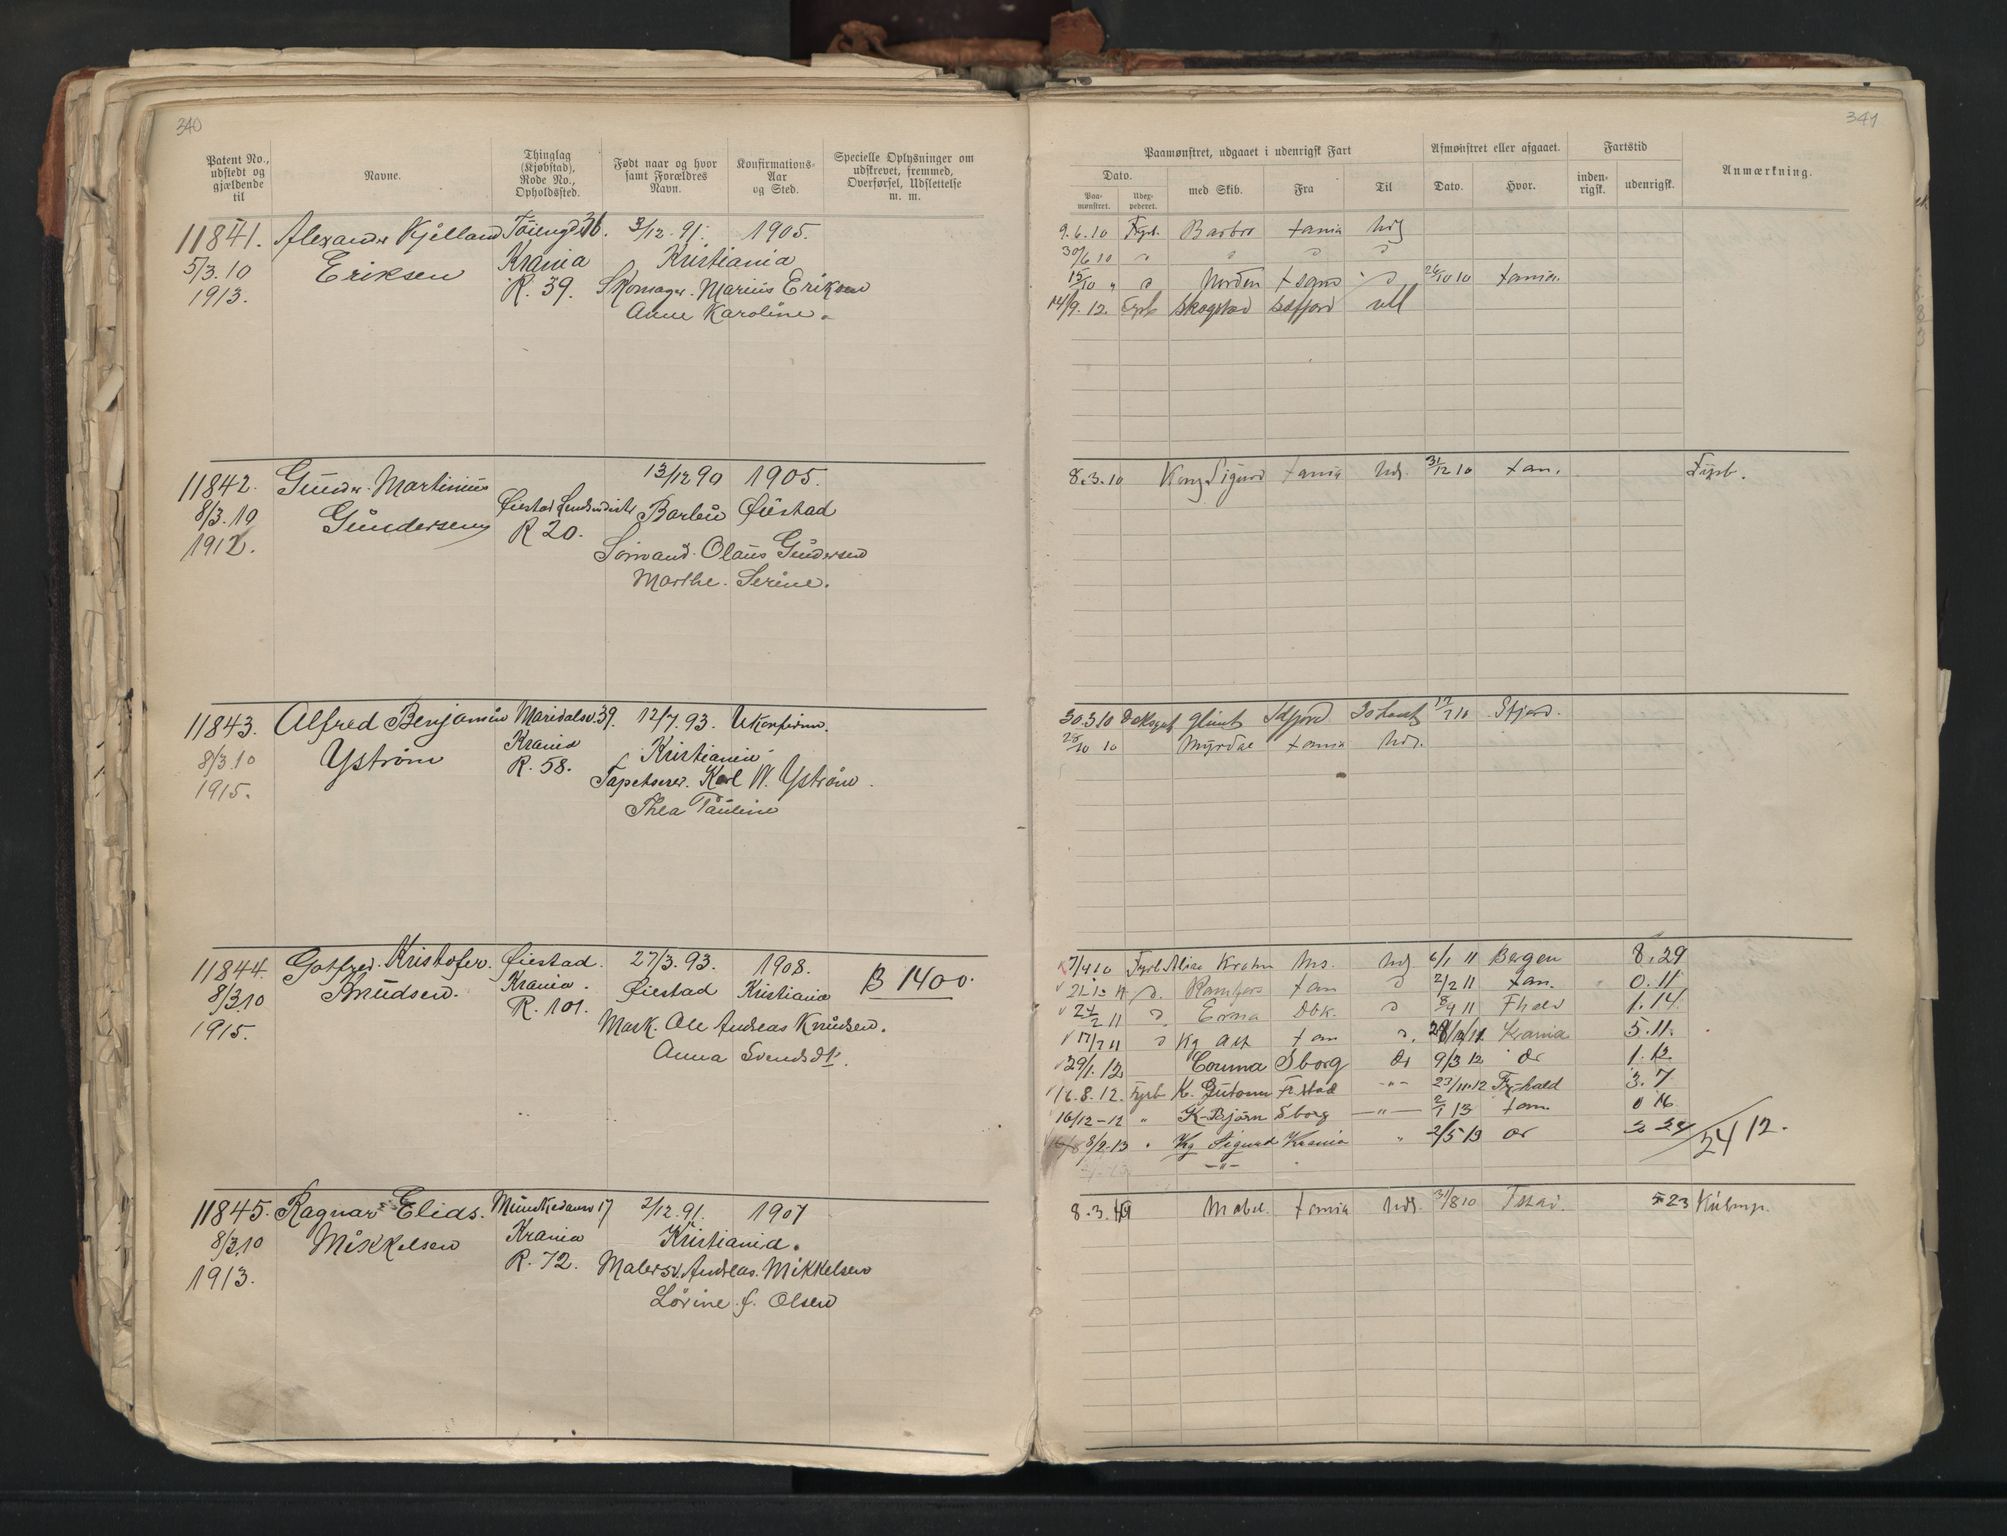 340
Patent No., udstedt og gjældende til
Navne.
Thinglag (Kjøbstad), Rode No., Opholdssted.
Født naar og hvor samt Forældres Navn.
Konfirmations-Aar og Sted.
Specielle Oplysninger om udskrevet, fremmed, Overførsel, Udslettelse m. m.
11841. Alexander Kjelland Töiengd 36. 3/12.91. 1905.
5/3.10 Eriksen Krania Kristiania
1913. R. 39. Skomager. Marius Eriksen
Anne Karoline.
11842. Gunder Martinius 13/12 90 1905.
8/3.10 Gundersen Øiestad Barbu Øiestad
1912. R 20. Olaus Gundersen
Marthe Serine.
11843. Alfred Benjamin Maridalsv. 39. 12/7.93. Ukonfirm.
8/3.10 Yström Krania Kristiania
1915. R. 58. Tapetserer. Karl W. Yström.
Thea Pauline
11844. Gotfred Kristofer Øiestad. 27/3.93. 1908. B 1400.
8/3.10 Knudsen. Krania. Øiestad Kristiania
1915. R. 101. Mask. Ole Andreas Knudsen.
Anna Svendsdt.
11845. Ragnar Elias. Munkedamsv 17 2/12.91. 1907
8/3.10 Mikkelsen Krania Kristiania.
1913. R. 72. Malersv. Andreas Mikkelsen
Lovine f. Olsen
341
Paamønstret, udgaaet i udenrigsk Fart
Afmønstret eller afgaaet.
Fartstid
Anmærkning.
Dato.
Paa-mønstret.
Udex-pederet.
med Skib.
Fra
Til
Dato.
Hvor.
inden-rigsk.
udenrigsk.
9.6.10 Fyrb. Barbro tania Uds
30/6 10 " " " "
15/10 " " Norden " 26/10 10 tania.
14/9.12. Fyrb Skogstad
8.3.10 Kong Sigurd tania Uds. 31/12 10 tan. Fyrb.
30.3.10 Glimt 10 Sfjord.
28/10 10 Myrdal tania Uds.
7/4 10 Fyrb Alice Krohn Ms. Uds 6/1 11 Bergen 8.29
21.1.11 tan 2/2 11 tan. 0.11
24/2 11 Erna 8/4 11 Fhald 1.14
17/7 11 Kg Alf tan Krania 5.11.
29/1.12 Coruna Sborg 9/3 12 1.12
16.8.12. Fyrb K. Gutorm Frstad -"- 23/11.12 Fr-hald 3.7
16/12-12 " K. Bjørn Sborg -"- 2/1 13 tan. 0 16
8/2.13 " Kg Sigurd Krania " 2/5 13 2 24 24/12.
-"-
8.3.10 Mabel. tania Uds. 31/8 10 5 23